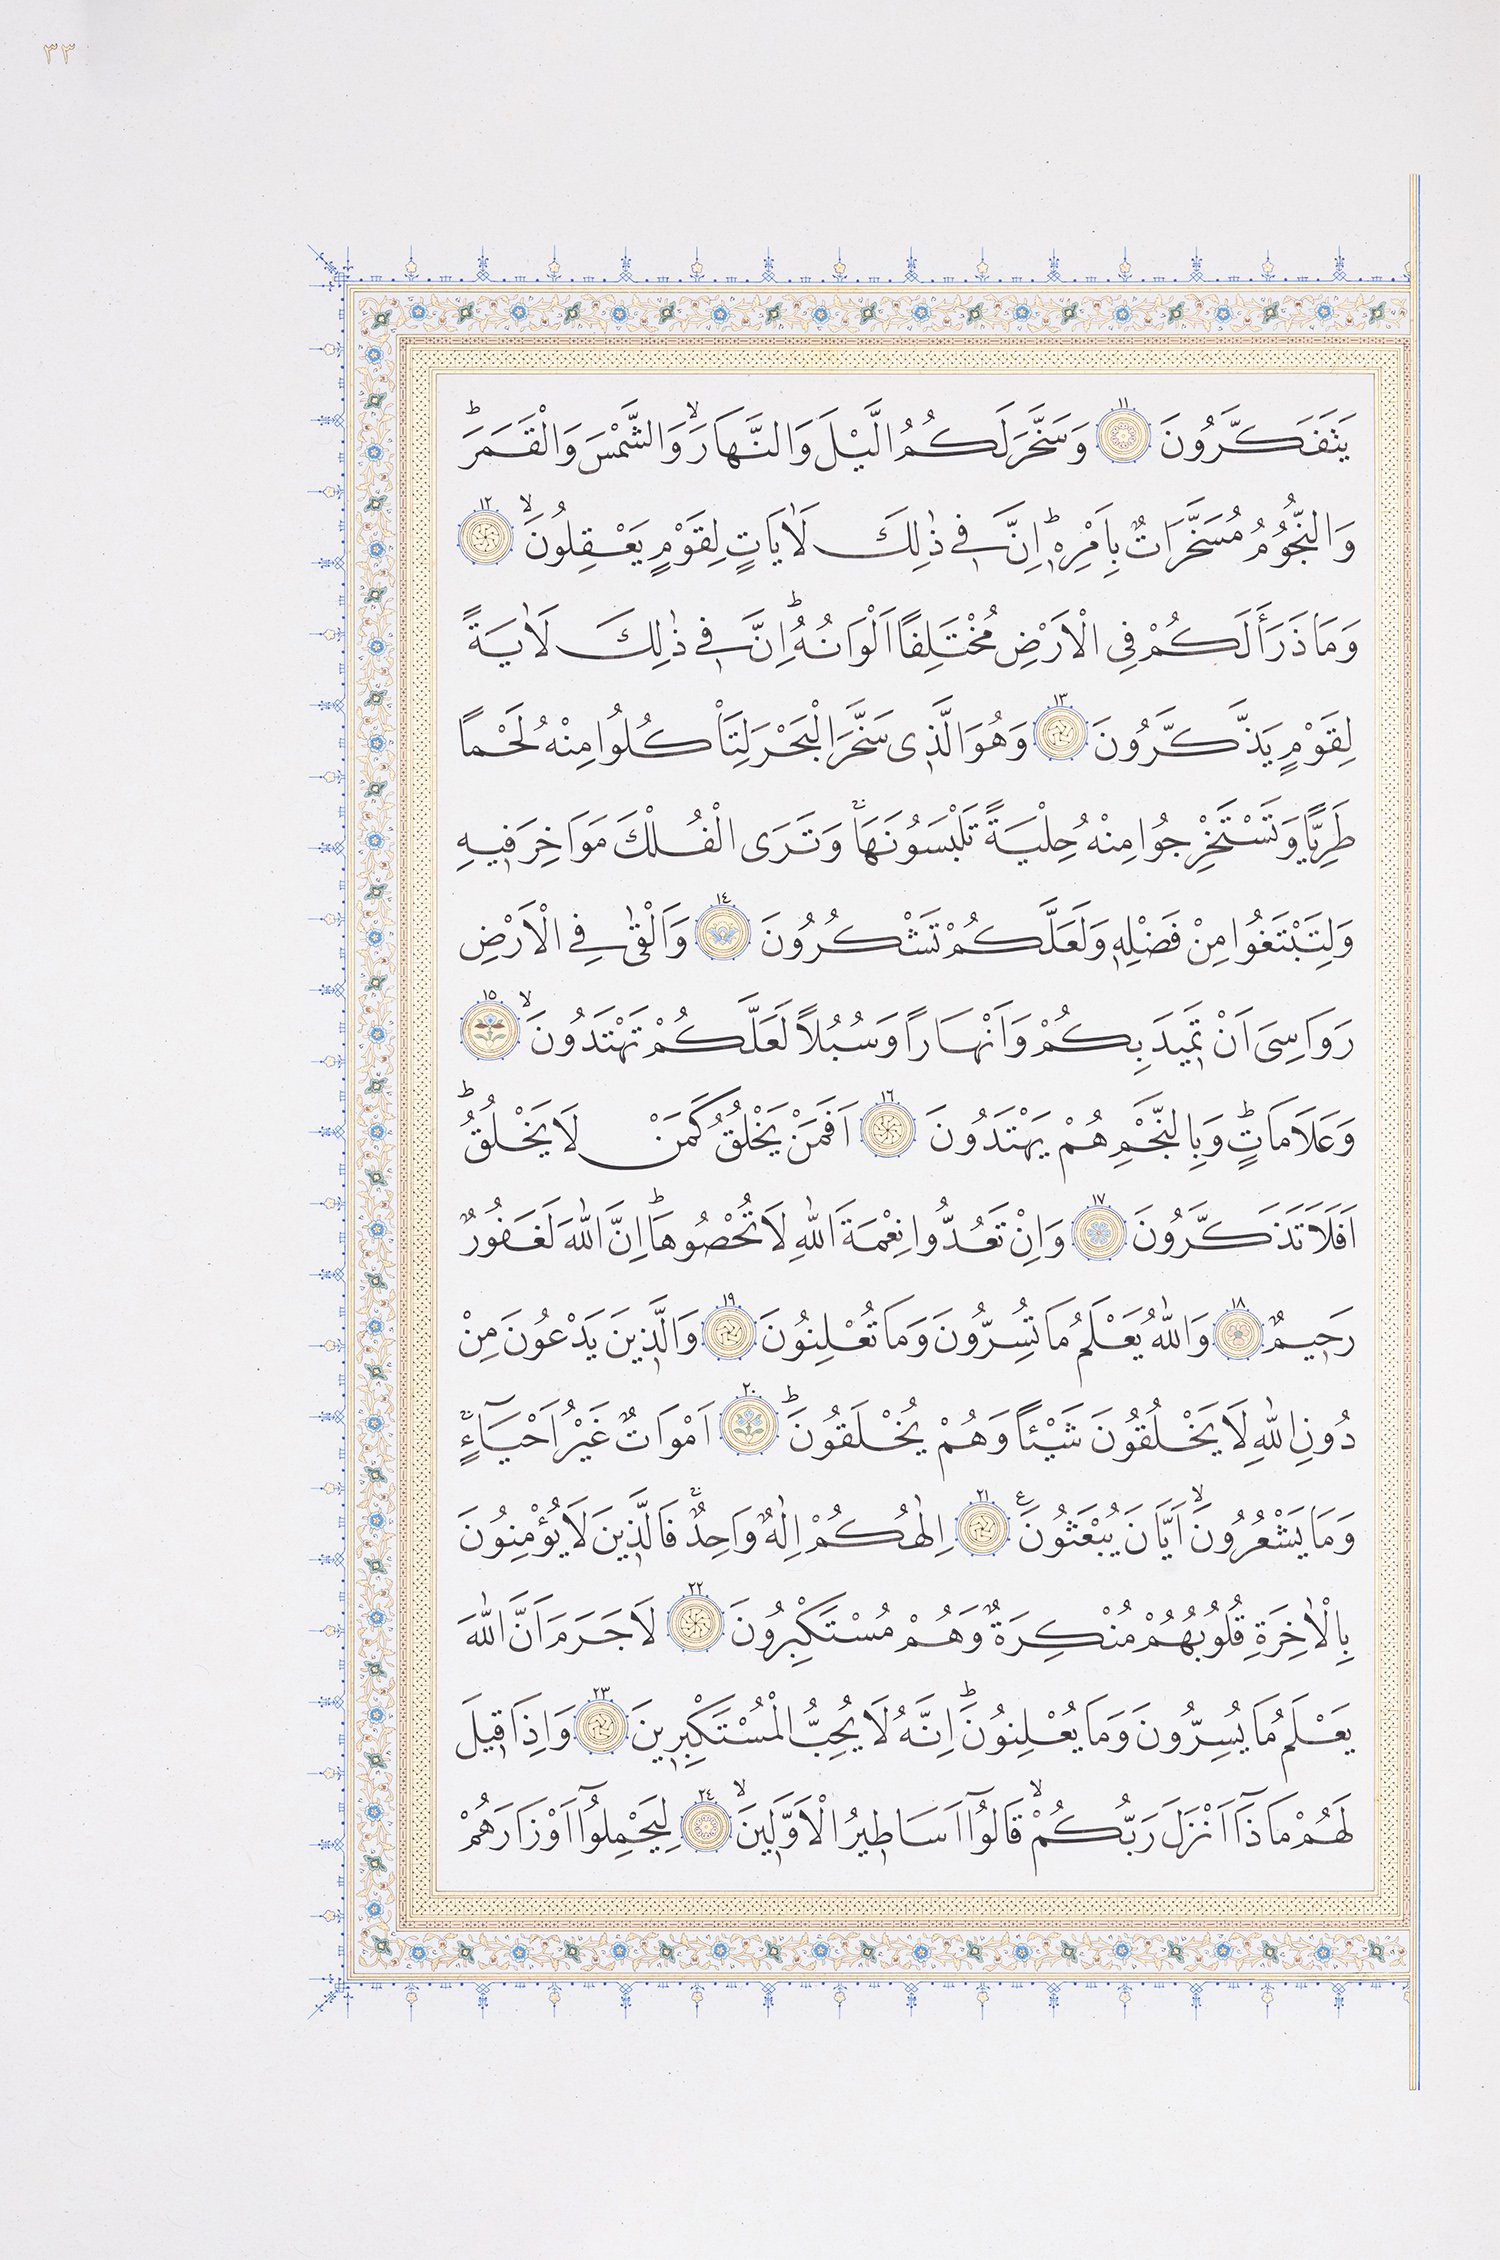 ٣٣
يَتَفَكَّرُونَ ١١ وَسَخَّرَ لَكُمُ الَّيْلَ وَالنَّهَارَۙ وَالشَّمْسَ وَالْقَمَرَۜ
وَالنُّجُومُ مُسَخَّرَاتٌ بِاَمْرِهٖۜ اِنَّ فٖي ذٰلِكَ لَاٰيَاتٍ لِقَوْمٍ يَعْقِلُونَۙ ١٢
وَمَا ذَرَأَ لَكُمْ فِي الْاَرْضِ مُخْتَلِفًا اَلْوَانُهُۜ اِنَّ فٖي ذٰلِكَ لَاٰيَةً
لِقَوْمٍ يَذَّكَّرُونَ ١٣ وَهُوَ الَّذٖي سَخَّرَ الْبَحْرَ لِتَأْكُلُوا مِنْهُ لَحْمًا
طَرِيًّا وَتَسْتَخْرِجُوا مِنْهُ حِلْيَةً تَلْبَسُونَهَاۚ وَتَرَى الْفُلْكَ مَوَاخِرَ فٖيهِ
وَلِتَبْتَغُوا مِنْ فَضْلِهٖ وَلَعَلَّكُمْ تَشْكُرُونَ ١٤ وَاَلْقٰى فِي الْاَرْضِ
رَوَاسِيَ اَنْ تَمٖيدَ بِكُمْ وَاَنْهَارًا وَسُبُلًا لَعَلَّكُمْ تَهْتَدُونَۙ ١٥
وَعَلَامَاتٍۜ وَبِالنَّجْمِ هُمْ يَهْتَدُونَ ١٦ اَفَمَنْ يَخْلُقُ كَمَنْ لَا يَخْلُقُۜ
اَفَلَا تَذَكَّرُونَ ١٧ وَاِنْ تَعُدُّوا نِعْمَةَ اللّٰهِ لَا تُحْصُوهَاۜ اِنَّ اللّٰهَ لَغَفُورٌ
رَحٖيمٌ ١٨ وَاللّٰهُ يَعْلَمُ مَا تُسِرُّونَ وَمَا تُعْلِنُونَ ١٩ وَالَّذٖينَ يَدْعُونَ مِنْ
دُونِ اللّٰهِ لَا يَخْلُقُونَ شَيْـًٔا وَهُمْ يُخْلَقُونَۜ ٢٠ اَمْوَاتٌ غَيْرُ اَحْيَٓاءٍۚ
وَمَا يَشْعُرُونَۙ اَيَّانَ يُبْعَثُونَ ع ٢١ اِلٰهُكُمْ اِلٰهٌ وَاحِدٌۚ فَالَّذٖينَ لَا يُؤْمِنُونَ
بِالْاٰخِرَةِ قُلُوبُهُمْ مُنْكِرَةٌ وَهُمْ مُسْتَكْبِرُونَ ٢٢ لَا جَرَمَ اَنَّ اللّٰهَ
يَعْلَمُ مَا يُسِرُّونَ وَمَا يُعْلِنُونَۜ اِنَّهُ لَا يُحِبُّ الْمُسْتَكْبِرٖينَ ٢٣ وَاِذَا قٖيلَ
لَهُمْ مَاذَٓا اَنْزَلَ رَبُّكُمْۙ قَالُٓوا اَسَاطٖيرُ الْاَوَّلٖينَۙ ٢٤ لِيَحْمِلُٓوا اَوْزَارَهُمْ